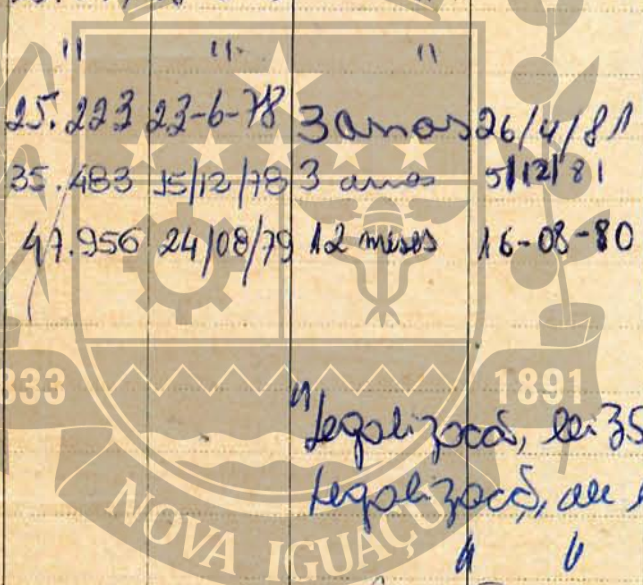 " " "
25.223 23-6-78 3 anos 26/4/81
35.483 15/12/78 3 anos 5/12/81
47.956 24/08/79 12 meses 16-08-80
833 1891
" Legalizocoõ, lei 35
Legalizocoõ,
" "
NOVA IGUAÇU